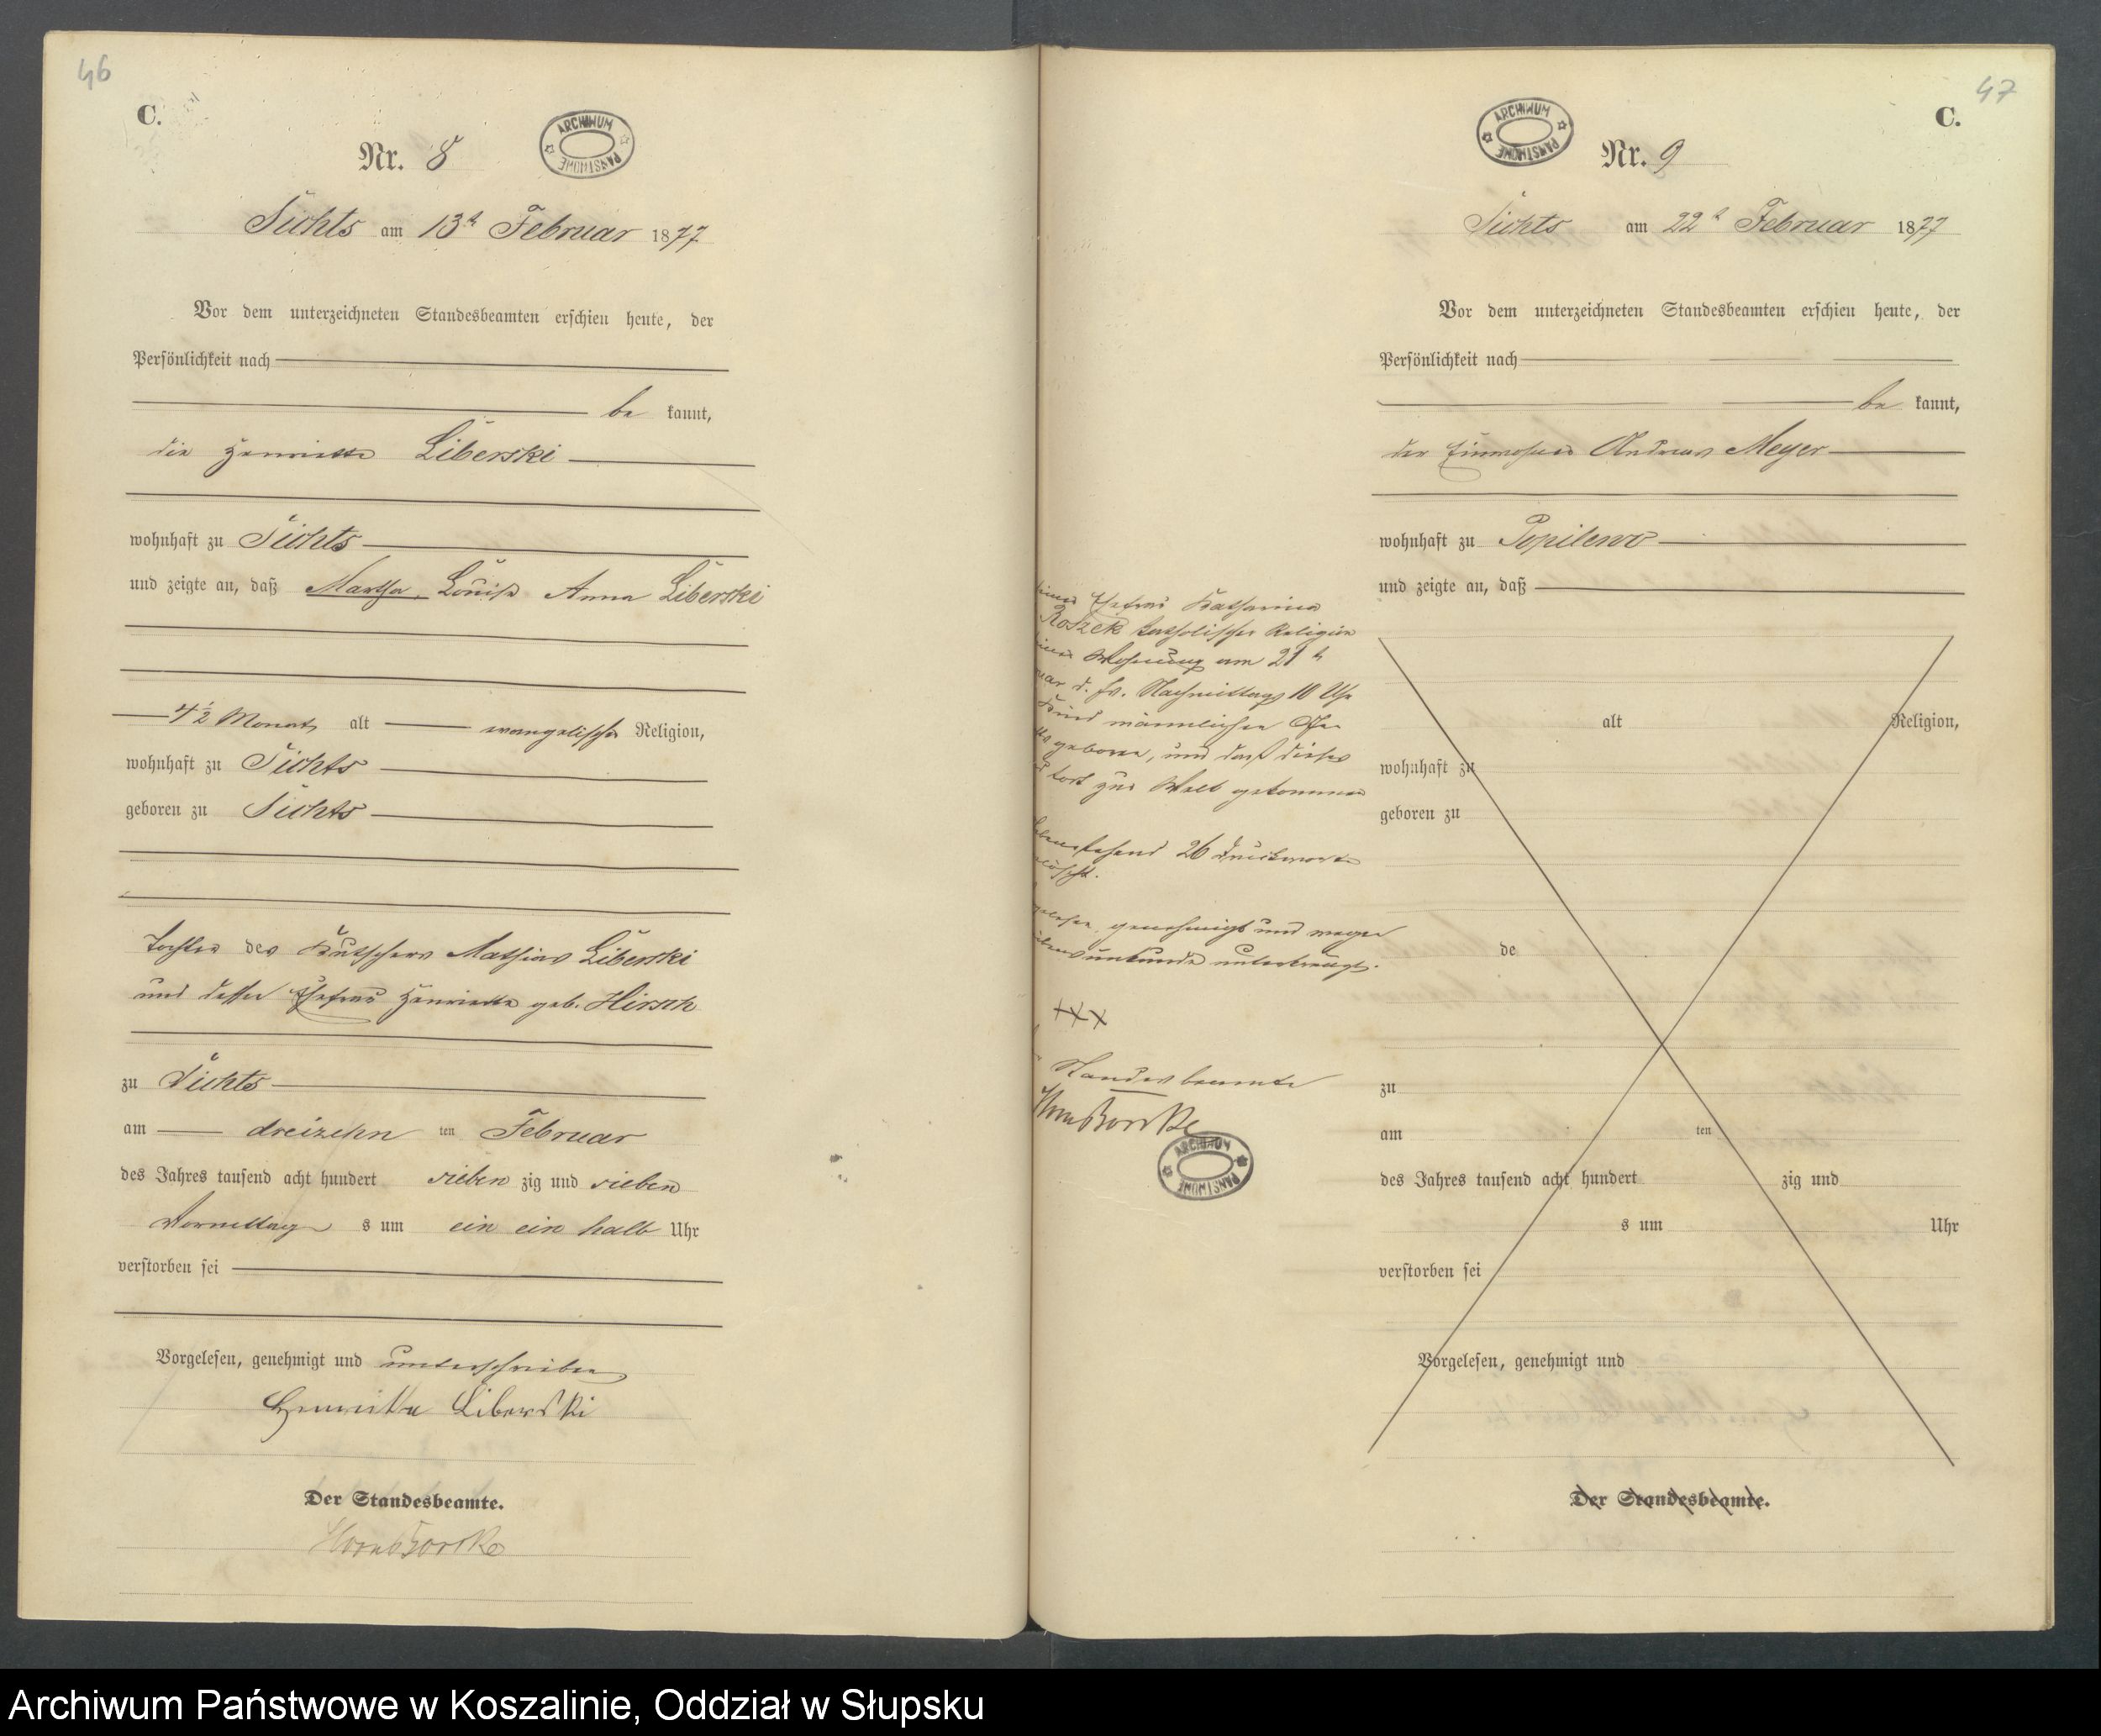 46
C.
ARCHIWUM PAŃSTWOWE
Nr. 8
Sichts am 13t Februar 1877
Vor dem unterzeichneten Standesbeamten erschien heute, der
Persönlichkeit nach
be kannt,
die Henriette Liberski
wohnhaft zu Sichts
und zeigte an, daß Martha, Louise Anna Liberski
4½ Monat alt evangelischer Religion,
wohnhaft zu Sichts
geboren zu Sichts
Tochter des Kutschers Mathias Liberski
und dessen Ehefrau Henriette geb. Hirsch
zu Sichts
am dreizehn ten Februar
des Jahres tausend acht hundert sieben zig und sieben
Vormittag s um ein ein halb Uhr
verstorben sei
Vorgelesen, genehmigt und unterschrieben
Henriette Liberski
Der Standesbeamte.
47
C.
ARCHIWUM PAŃSTWOWE
Nr. 9
Sichts am 22t Februar 1877
Vor dem unterzeichneten Standesbeamten erschien heute, der
Persönlichkeit nach
be kannt,
der Einwohner Andreas Meyer
wohnhaft zu Popilewo
und zeigte an, daß
Ehefrau Katharina
Roszek katholischer Religion
Wohnung am 21t
d. Js. Nachmittags 10 Uhr
Kind männlichen Ge
geboren, und daß dieses
todt zur Welt gekommen
26 Druckworte
genehmigt und wegen
unterkreuzt.
+++
Standesbeamte
ARCHIWUM PAŃSTWOWE
alt Religion,
wohnhaft zu
geboren zu
de
zu
am ten
des Jahres tausend acht hundert zig und
s um Uhr
verstorben sei
Vorgelesen, genehmigt und
Der Standesbeamte.
Archiwum Państwowe w Koszalinie, Oddział w Słupsku